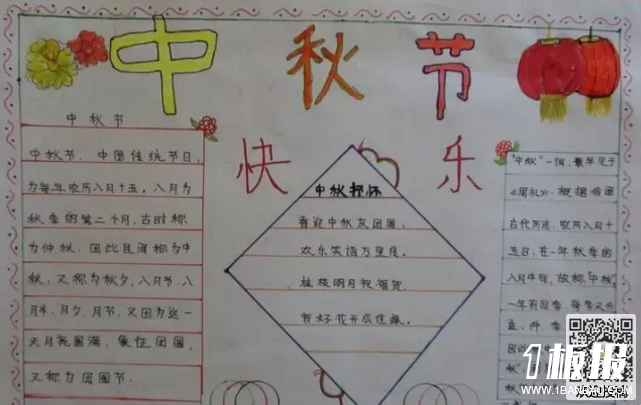 中秋节
快乐
中秋节
中秋节,中国传统节日,
为每年农历八月十五。八月为
秋季的第二个月,古时称
为仲秋,因此民间称为中
秋,又称为秋夕,八月节,八
月半,月夕,月节,又因为这一
天月亮圆满,象征团圆,
又称为团圆节。
中秋抒怀
喜迎中秋友团圆,
欢乐笑语万里
桂枝明月祝福贺
好花开
"中秋"一词,最早见于
《周礼》。根据我国
古代历法,农历八月十
五日,在一年秋季的
八月中旬,故称"中秋"
一年有四季,每季又分
孟、仲、季
因此
秋
秋
1板报
WWW.1BANBAO.COM
欢迎投稿